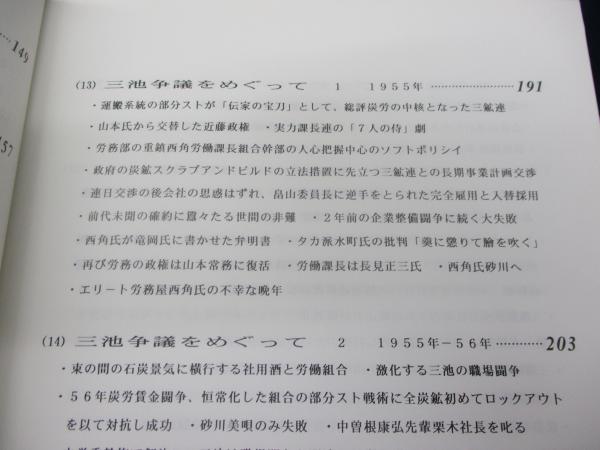 149
157
(13) 三池争議をめぐって 1 1955年 ……………………191
・運搬系統の部分ストが「伝家の宝刀」として、総評炭労の中核となった三鉱連
・山本氏から交替した近藤政権 ・実力課長連の「7人の侍」劇
・労務部の重鎮西角労働課長組合幹部の人心把握中心のソフトポリシイ
・政府の炭鉱スクラブアンドビルドの立法措置に先立つ三鉱連との長期事業計画交渉
・連日交渉の後会社の思惑はずれ、畠山委員長に逆手をとられた完全雇用と入替採用
・前代未聞の確約に囂々たる世間の非難 ・2年前の企業整備闘争に続く大失敗
・西角氏が竜岡氏に書かせた弁明書 ・タカ派水町氏の批判「羹に懲りて膾を吹く」
・再び労務の政権は山本常務に復活 ・労働課長は長見正三氏 ・西角氏砂川へ
・エリート労務屋西角氏の不幸な晩年
(14) 三池争議をめぐって 2 1955年-56年 …………203
・束の間の石炭景気に横行する社用酒と労働組合 ・激化する三池の職場闘争
・56年炭労賃金闘争、恒常化した組合の部分スト戦術に全炭鉱初めてロックアウト
を以て対抗し成功 ・砂川美唄のみ失敗 ・中曽根康弘先輩栗木社長を叱る